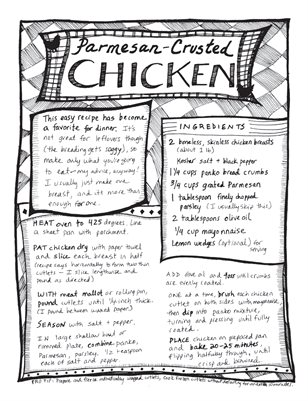 Parmesan-Crusted
CHICKEN
This easy recipe has become
a favorite for dinner. It's
not great for leftovers though
(the breading gets soggy), so
make only what you're going
to eat-my advice, anyway!
I usually just make one
breast, and it's more than
enough for one.
INGREDIENTS
2 boneless, skinless chicken breasts
(about 1 lb)
Kosher salt + black pepper
1 1/4 cups panko bread crumbs
3/4 cups grated Parmesan
1 tablespoon finely chopped
parsley (I usually skip this)
2 tablespoons olive oil
1/4 cup mayonnaise
Lemon wedges (optional) for
serving
HEAT oven to 425 degrees. Line
a sheet pan with parchment.
PAT chicken dry with paper towel
and slice each breast in half
(recipe says horizontally to form two thin
cutlets - I slice lengthwise and
pound as directed)
WITH meat mallet or rolling pin,
pound cutlets until 1/4 inch thick.
(I pound between waxed paper)
SEASON with salt + pepper.
IN large shallow bowl or
rimmed plate, combine panko,
Parmesan, parsley, 1/2 teaspoon
each of salt and pepper.
ADD olive oil and toss until crumbs
are evenly coated.
ONE at a time, brush each chicken
cutlet on both sides with mayonnaise,
then dip into panko mixture,
turning and pressing until fully
coated.
PLACE chicken on prepared pan
and bake 20-25 minutes,
flipping halfway through, until
crisp and browned.
PRO TIP: Prepare and freeze individually wrapped cutlets,